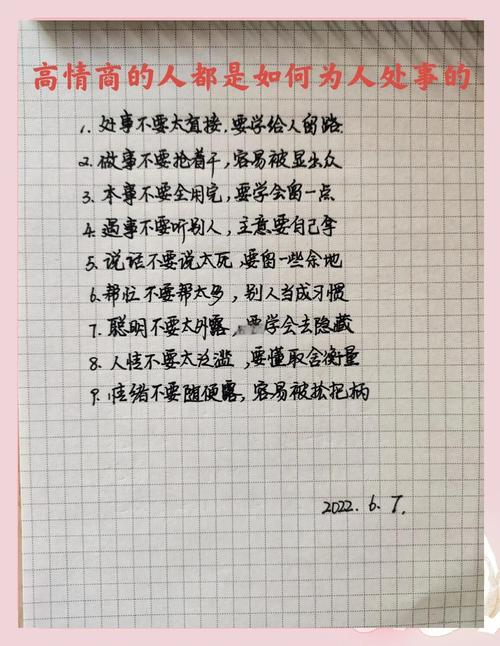 高情商的人都是如何为人处事的
1. 处事不要太直接,要学给人留路.
2. 做事不要抢着干,容易被显出众
3. 本事不要全用完,要学会留一点
4. 遇事不要听别人,主意要自己拿
5. 说话不要说太死,要留一些余地
6. 帮忙不要帮太多,别人当成习惯
7. 聪明不要太外露,要学会去隐藏
8. 人情不要太泛滥,要懂取舍衡量
9. 情绪不要随便露,容易被抢把柄
2022.6.7.